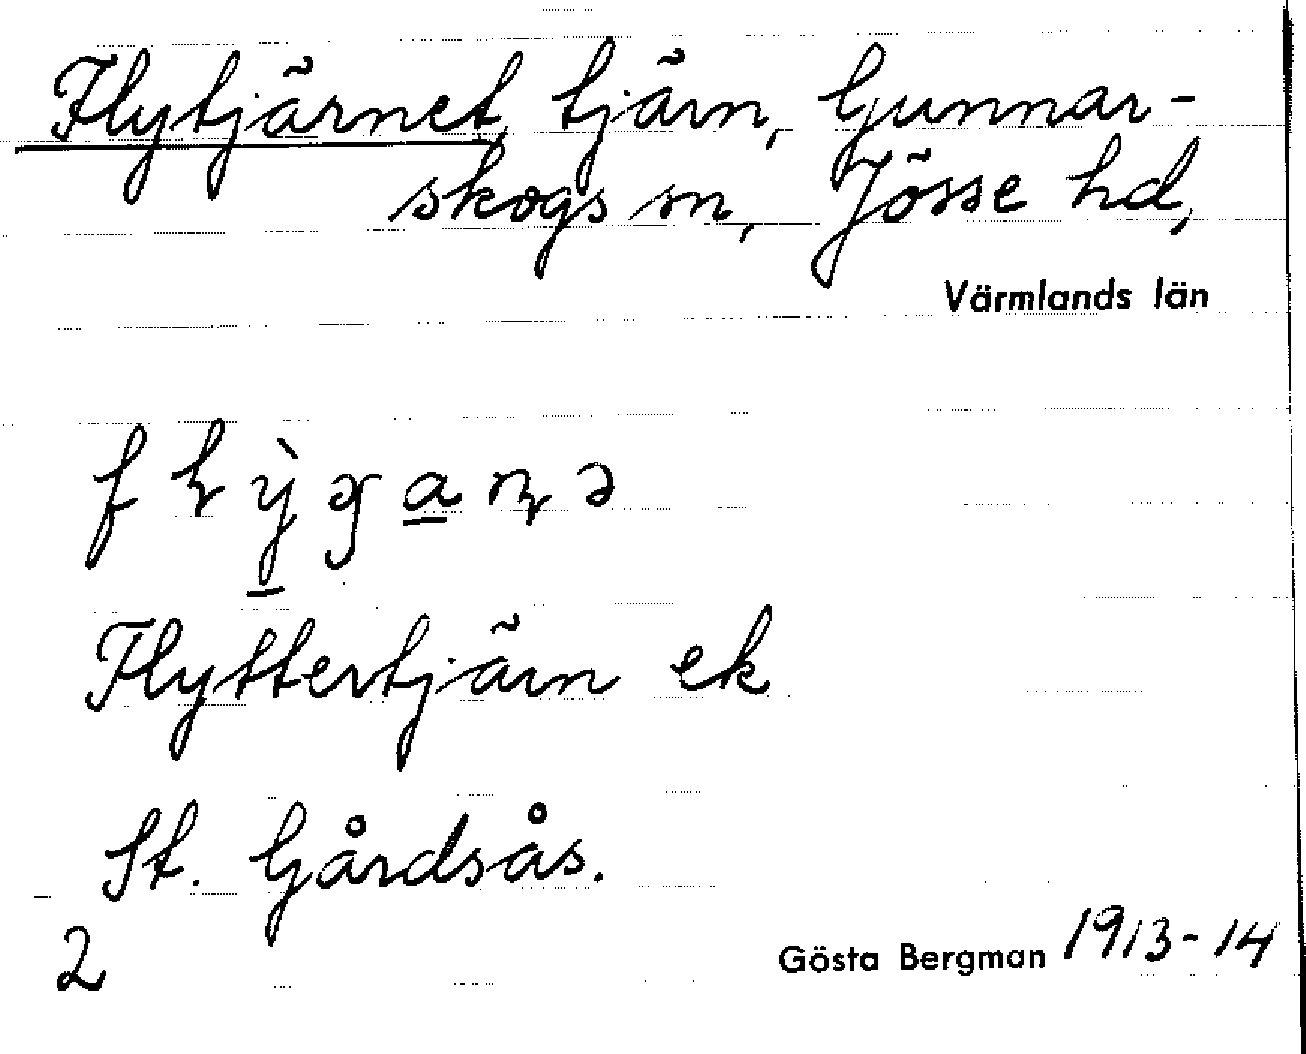 Flytjärnet, tjärn, Gunnar-
skogs sn, Jösse hd,
Värmlands län
Flyttertjärn ek
St. Gårdsås.
2
Gösta Bergman 1913-14